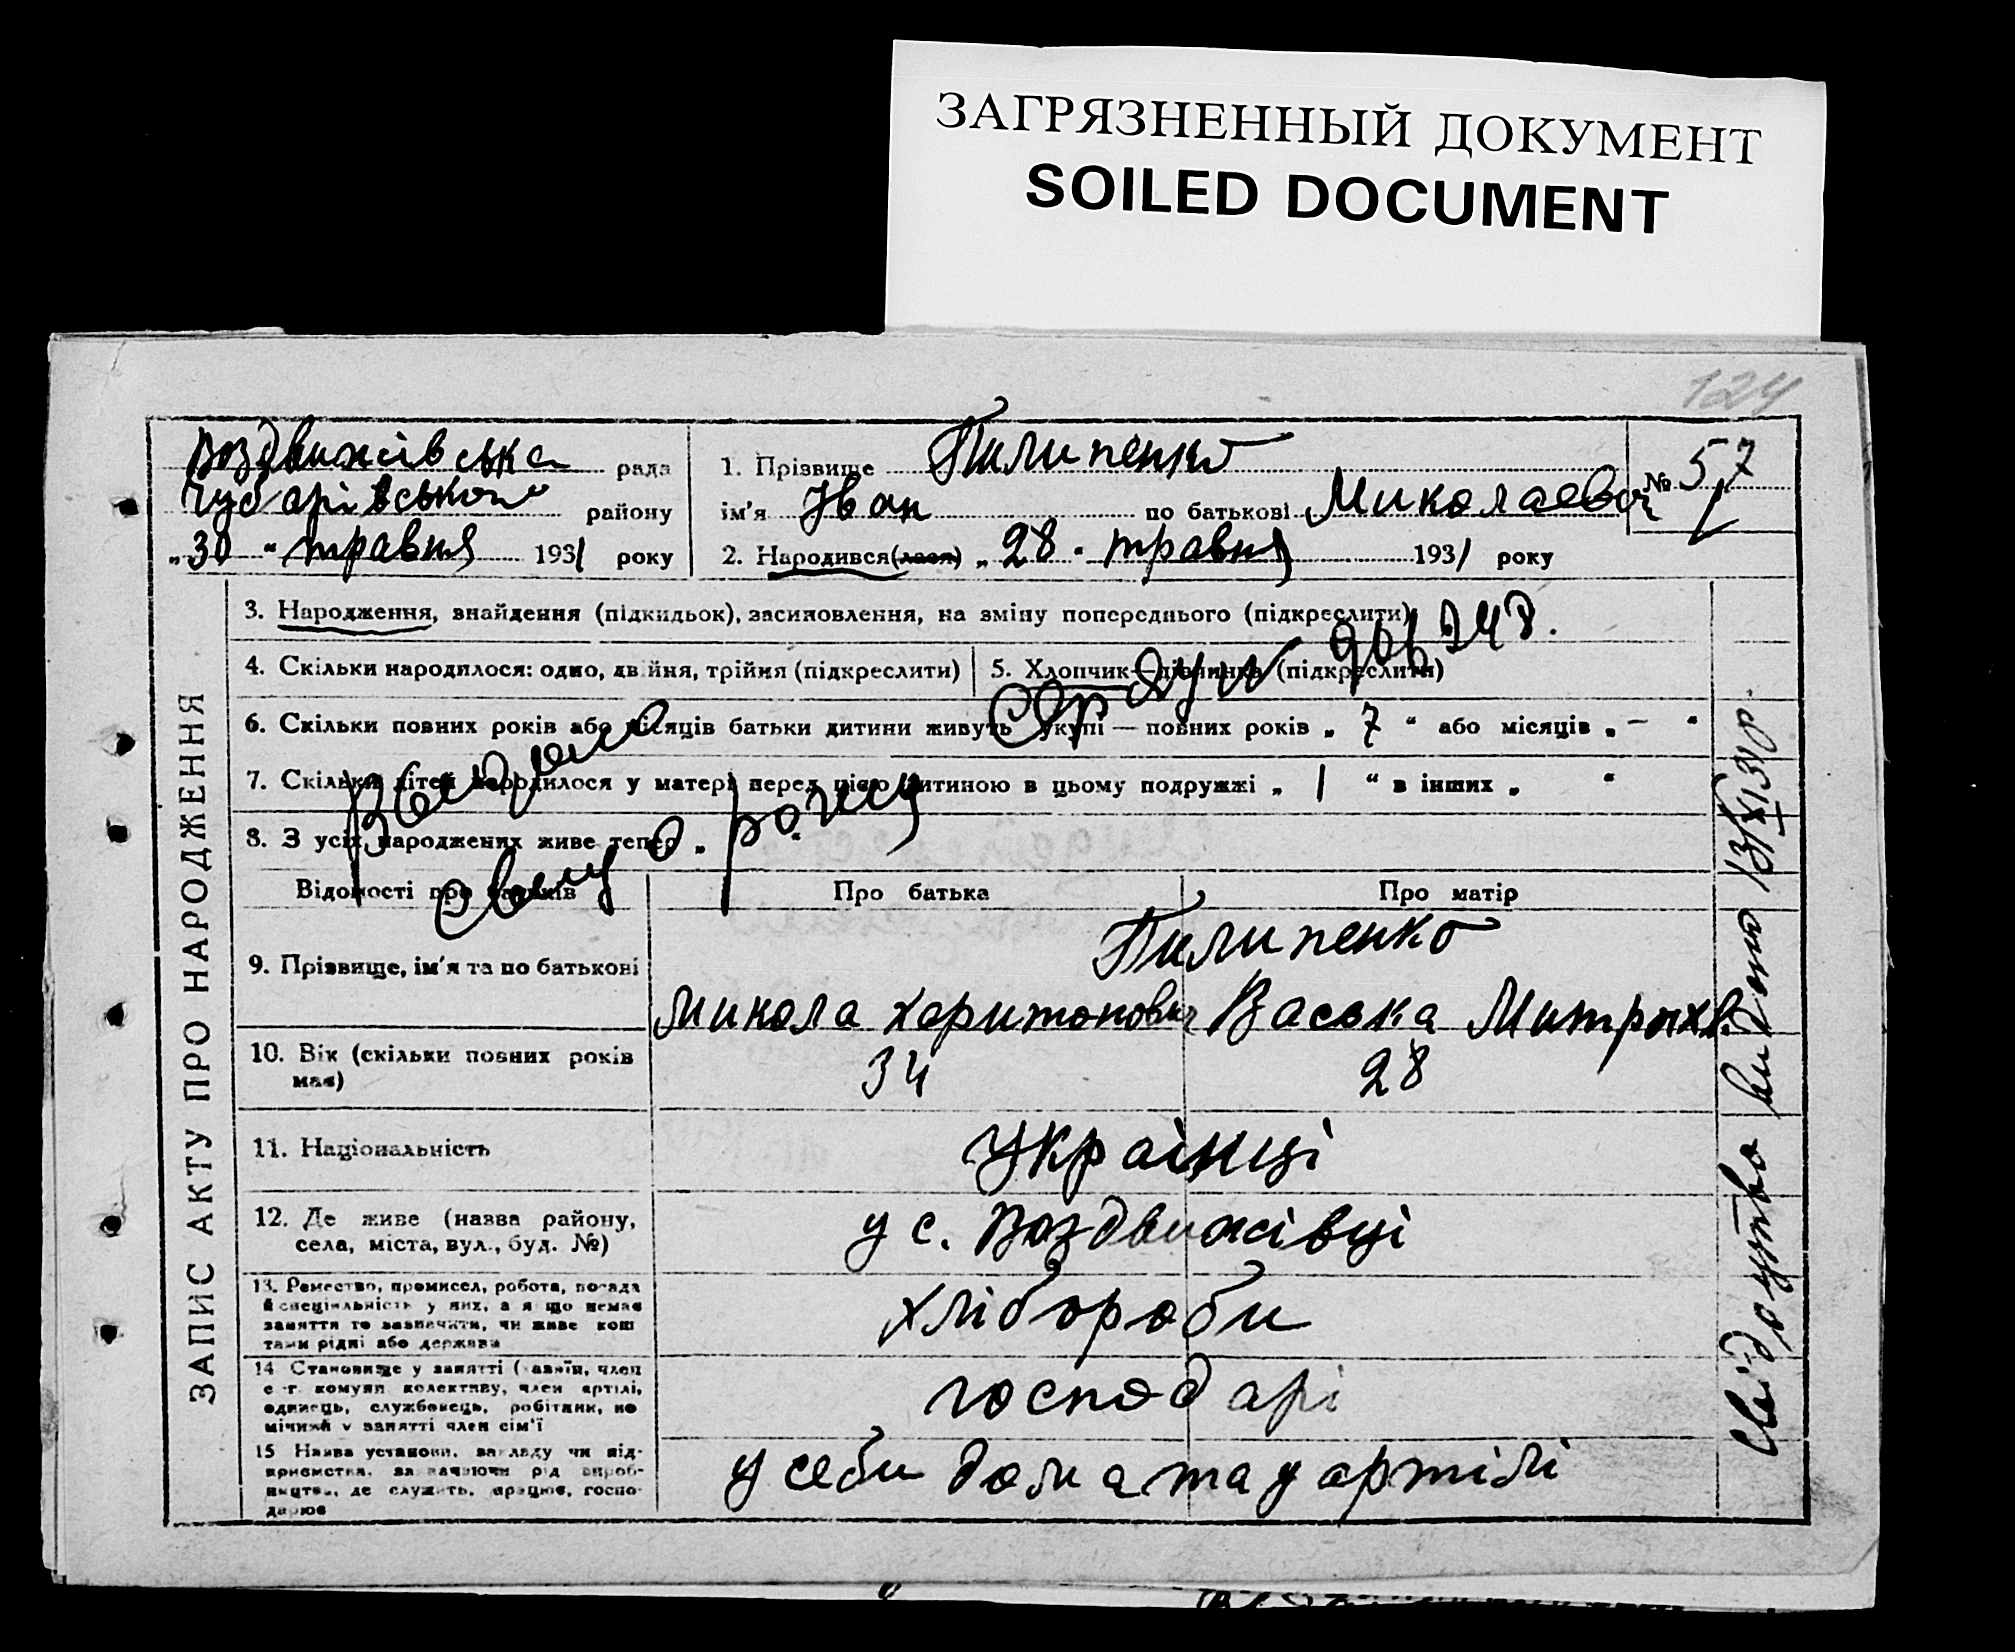 ЗАГРЯЗНЕННЫЙ ДОКУМЕНТ
SOILED DOCUMENT
124
Воздвижівська рада
Чубарівського району
„30 “ травня 1931 року
1. Прізвище Пилипенко
ім'я Іван по батькові Миколаевоч
№ 57
2. Народився(лася) „ 28 “ травня 1931 року
ЗАПИС АКТУ ПРО НАРОДЖЕННЯ
3. Народження, знайдення (підкидьок), засиновлення, на зміну попереднього (підкреслити)
4. Скільки народилося: одно, двійня, трійня (підкреслити)
5. Хлопчик—дівчинка (підкреслити)
6. Скільки повних років або місяців батьки дитини живуть укупі — повних років „ 7 “ або місяців „ — “
7. Скільки дітей народилося у матері перед цією дитиною в цьому подружжі „ 1 “ в інших „ “
8. З усіх народжених живе тепер „
Відомості про батьків
Про батька
Про матір
9. Прізвище, ім'я та по батькові
Пилипенко
Микола Харитонович Васька
10. Вік (скільки повних років має)
34
28
11. Національність
Українці
12. Де живе (назва району,
села, міста, вул., буд. №)
у с. Воздвижівці
13. Ремество, промисел, робота, посада
й спеціяльність у них, а якщо немає
заняття то зазначити, чи живе кош
тами рідні або держави
хлібороби
14 Становище у занятті (хазяїн, член
с.-г. комуни колективу, член артілі,
одинець, службовець, робітник, по
мічний у занятті член сім'ї
господарі
15 Назва установи, закладу чи під-
приємства, зазначаючи рід вироб-
ництва, де служить, працює, госпо-
дарює
у себи дома та у артілі
Свідоцтво видано 13/XI 31 р.